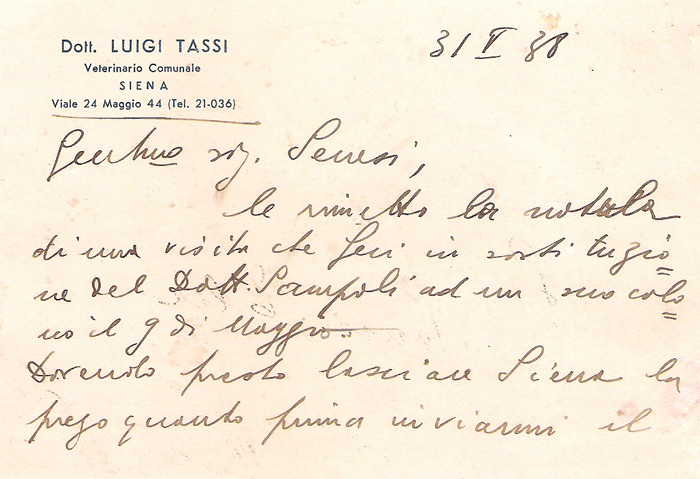 Dott. LUIGI TASSI
Veterinario Comunale
SIENA
Viale 24 Maggio 44 (Tel. 21-036)
31 V 38
Gent.mo sig. Senesi,
le rimetto la notula
di una visita che feci in sostituzio=
ne del Dott. Sampoli ad un suo colo=
no il 9 di Maggio
Dovendo presto lasciare Siena la
prego quanto prima inviarmi il